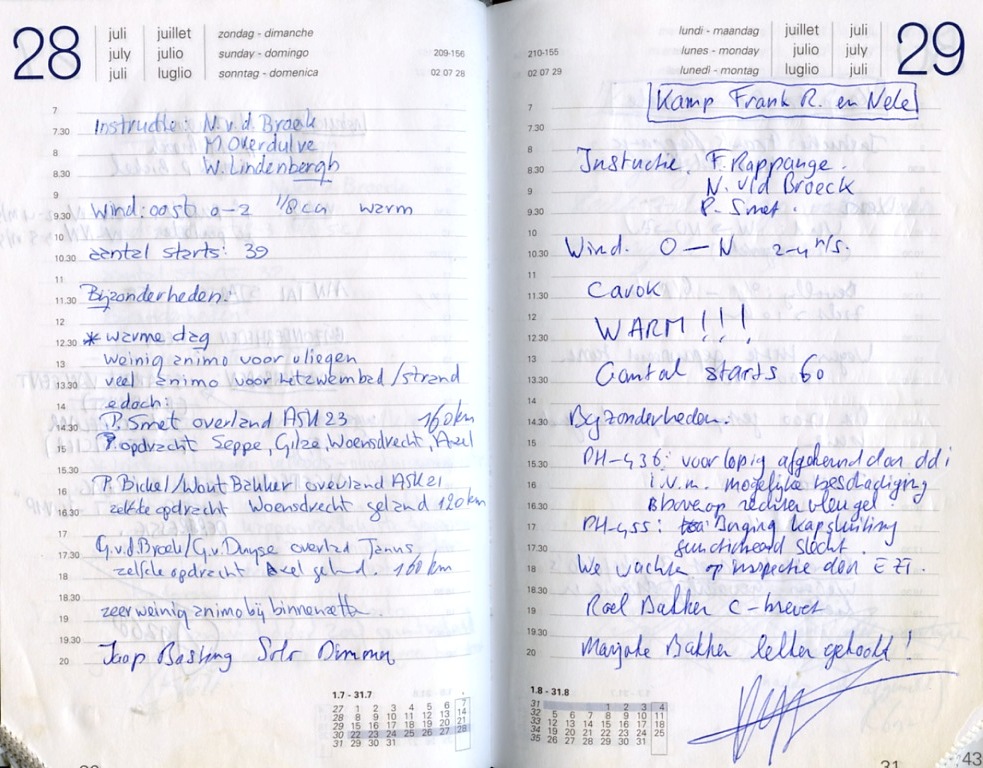 28
juli juillet zondag - dimanche
july julio sunday - domingo 209-156
juli luglio sonntag - domenica 02 07 28
7
7.30 Instructie: N. v.d. Broek
8 M. Overdulve
8.30 W. Lindenbergh
9
9.30 Wind: oost 0-2 1/8 cu warm
10
10.30 aantal starts: 39
11
11.30 Bijzonderheden:
12
12.30 * warme dag
13 weinig animo voor vliegen
13.30 veel animo voor het zwembad/strand
14 edoch:
14.30 P. Smet overland ASK 23 160 km
15 opdracht Seppe, Gilze, Woensdrecht, Axel
15.30
16 P. Bickel/Wout Bakker overland ASK21
16.30 zelfde opdracht Woensdrecht geland 120 km
17
17.30 G.v.d Broek/G.v. Duyse overland Janus
18 zelfde opdracht Axel geland. 160 km
18.30
19 zeer weinig animo bij binnenzetten.
19.30
20 Jaap Basting Solo Dimona
1.7 - 31.7
27 1 2 3 4 5 6 7
28 8 9 10 11 12 13 14
29 15 16 17 18 19 20 21
30 22 23 24 25 26 27 28
31 29 30 31
29
lundi - maandag juillet juli
210-155 lunes - monday julio july
02 07 29 lunedì - montag luglio juli
7 Kamp Frank R. en Nele
7.30
8
8.30 Instuctie. F. Rappange.
9 N. v/d Broeck
9.30 P. Smet.
10
10.30 Wind. O — N 2-4 m/s.
11
11.30 Cavok
12
12.30 WARM!!!
13
13.30 Aantal starts 60
14
14.30 Bijzonderheden:
15
15.30 PH-436: voorlopig afgekeurd dan dd i
16 i.v.m. mogelijke beschadiging
16.30 bovenop rechter vleugel.
17 PH-455: Borging kapsluiting
17.30 functioneerd slecht.
18 We wachten op inspectie don EZT.
18.30
19 Roel Bakker C-brevet
19.30
20 Marjoke Bakker letter gehaald!
1.8 - 31.8
31 1 2 3 4
32 5 6 7 8 9 10 11
33 12 13 14 15 16 17 18
34 19 20 21 22 23 24 25
35 26 27 28 29 30 31
31
43